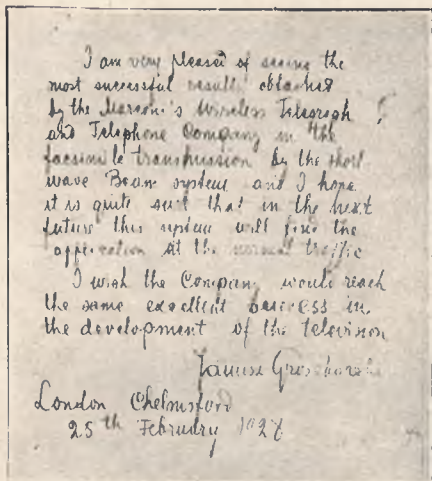 I am very pleased of seeing the
most successful results obtained
by the Marconi's Wireless Telegraph
and Telephone Company in the
facsimile transmission by the short
wave Beam system and I hope
it is quite that in the next
future this system will find the
application at the normal traffic
I wish the Company would reach
the same excellent success in
the development of the television
Janusz
London Chelmsford
25th February 1928